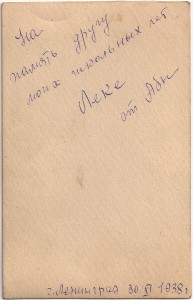 На
память другу
моих школьных лет
Леке
от Абы
г. Ленинград 30 XI 1938 г